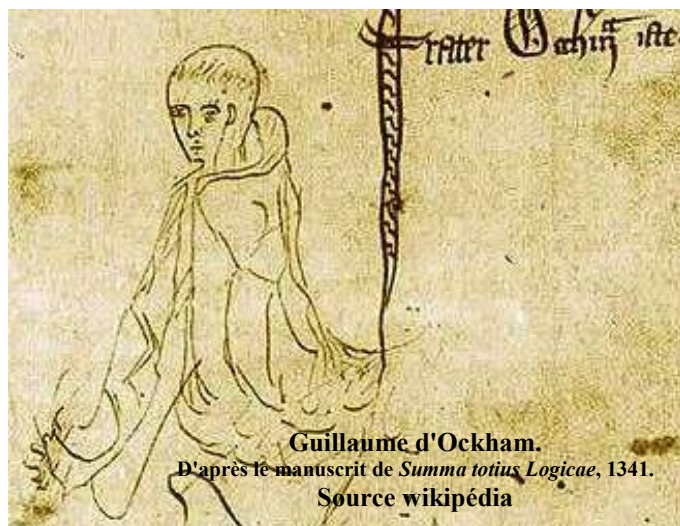 frater Occham iste
Guillaume d'Ockham.
D'après le manuscrit de Summa totius Logicae, 1341.
Source wikipédia